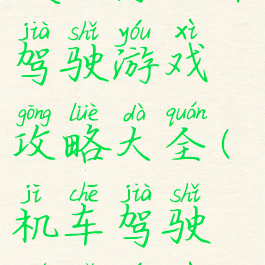 jià shǐ yóu xì
驾驶游戏
gōng lüè dà quán
攻略大全(
jī chē jià shǐ
机车驾驶